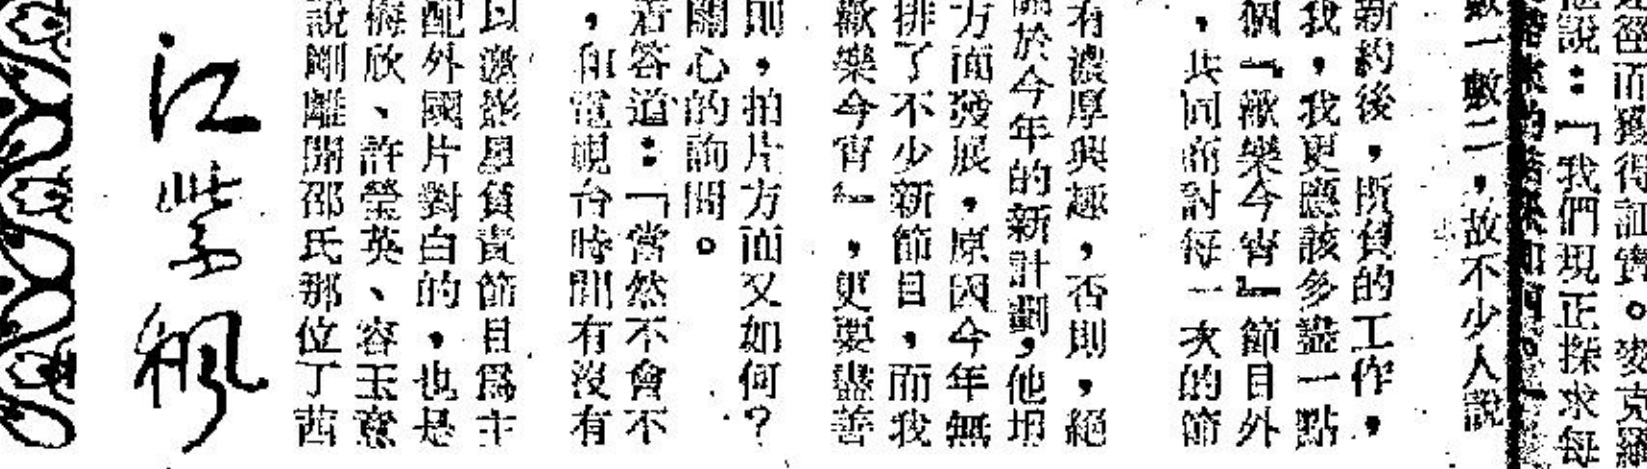 逕而獲得証實。麥克羅
他說：「我們現正探求每
數一數二，故不少人說
新約後，所負的工作，
我，我更應該多盡一點
個『歡樂今宵』節目外
，共同商討每一次的節
有濃厚興趣，否則，絕
關於今年的新計劃，他坦
方面發展，原因今年無
排了不少新節目，而我
歡樂今宵』，更要盡善
則，拍片方面又如何？
關心的詢問。
着答道：「當然不會不
，但電視台時間有沒有
以激影星負責節目爲主
配外國片對白的，也是
梅欣、許瑩英、容玉意
說剛離開邵氏那位丁茜
江紫楓